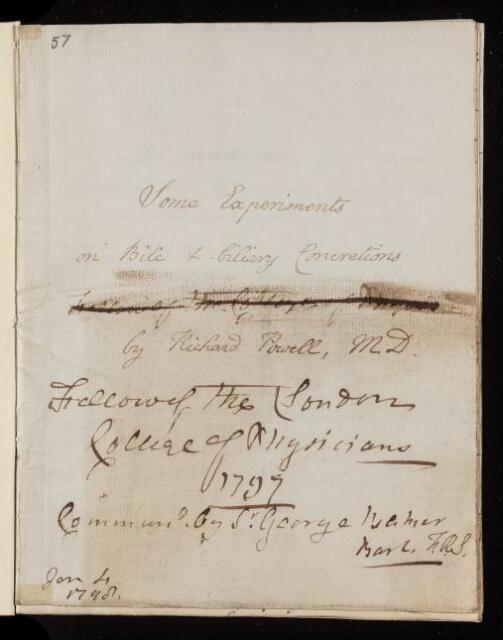 57
Some Experiments
on Bile & biliary Concretions
by Richard Powell, M.D.
Fellow of the London
College of Physicians
1797
Commun.d by Sr. George Baker
Bart. F.R.S.
Jan 4
1798.